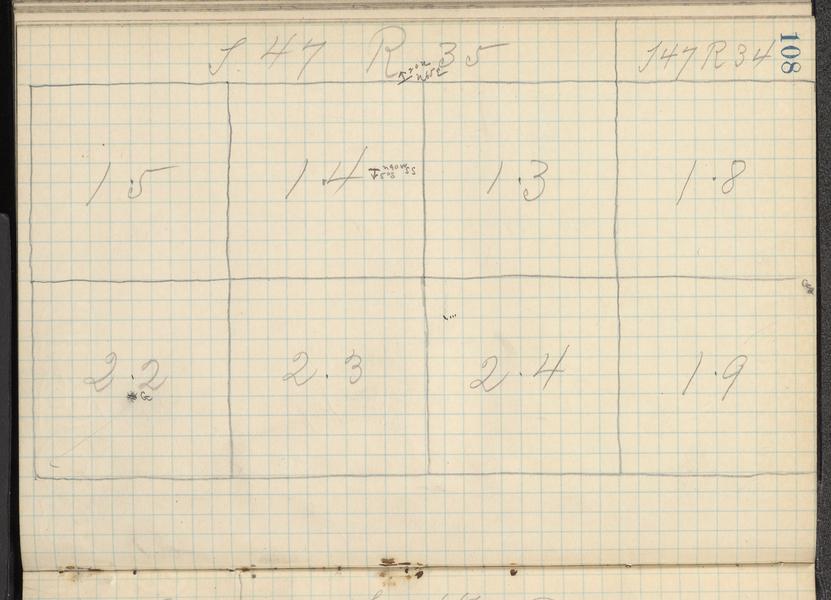 T 47 R 35
T47R34
108
1.5
1.4
1.3
1.8
2.2
2.3
2.4
1.9